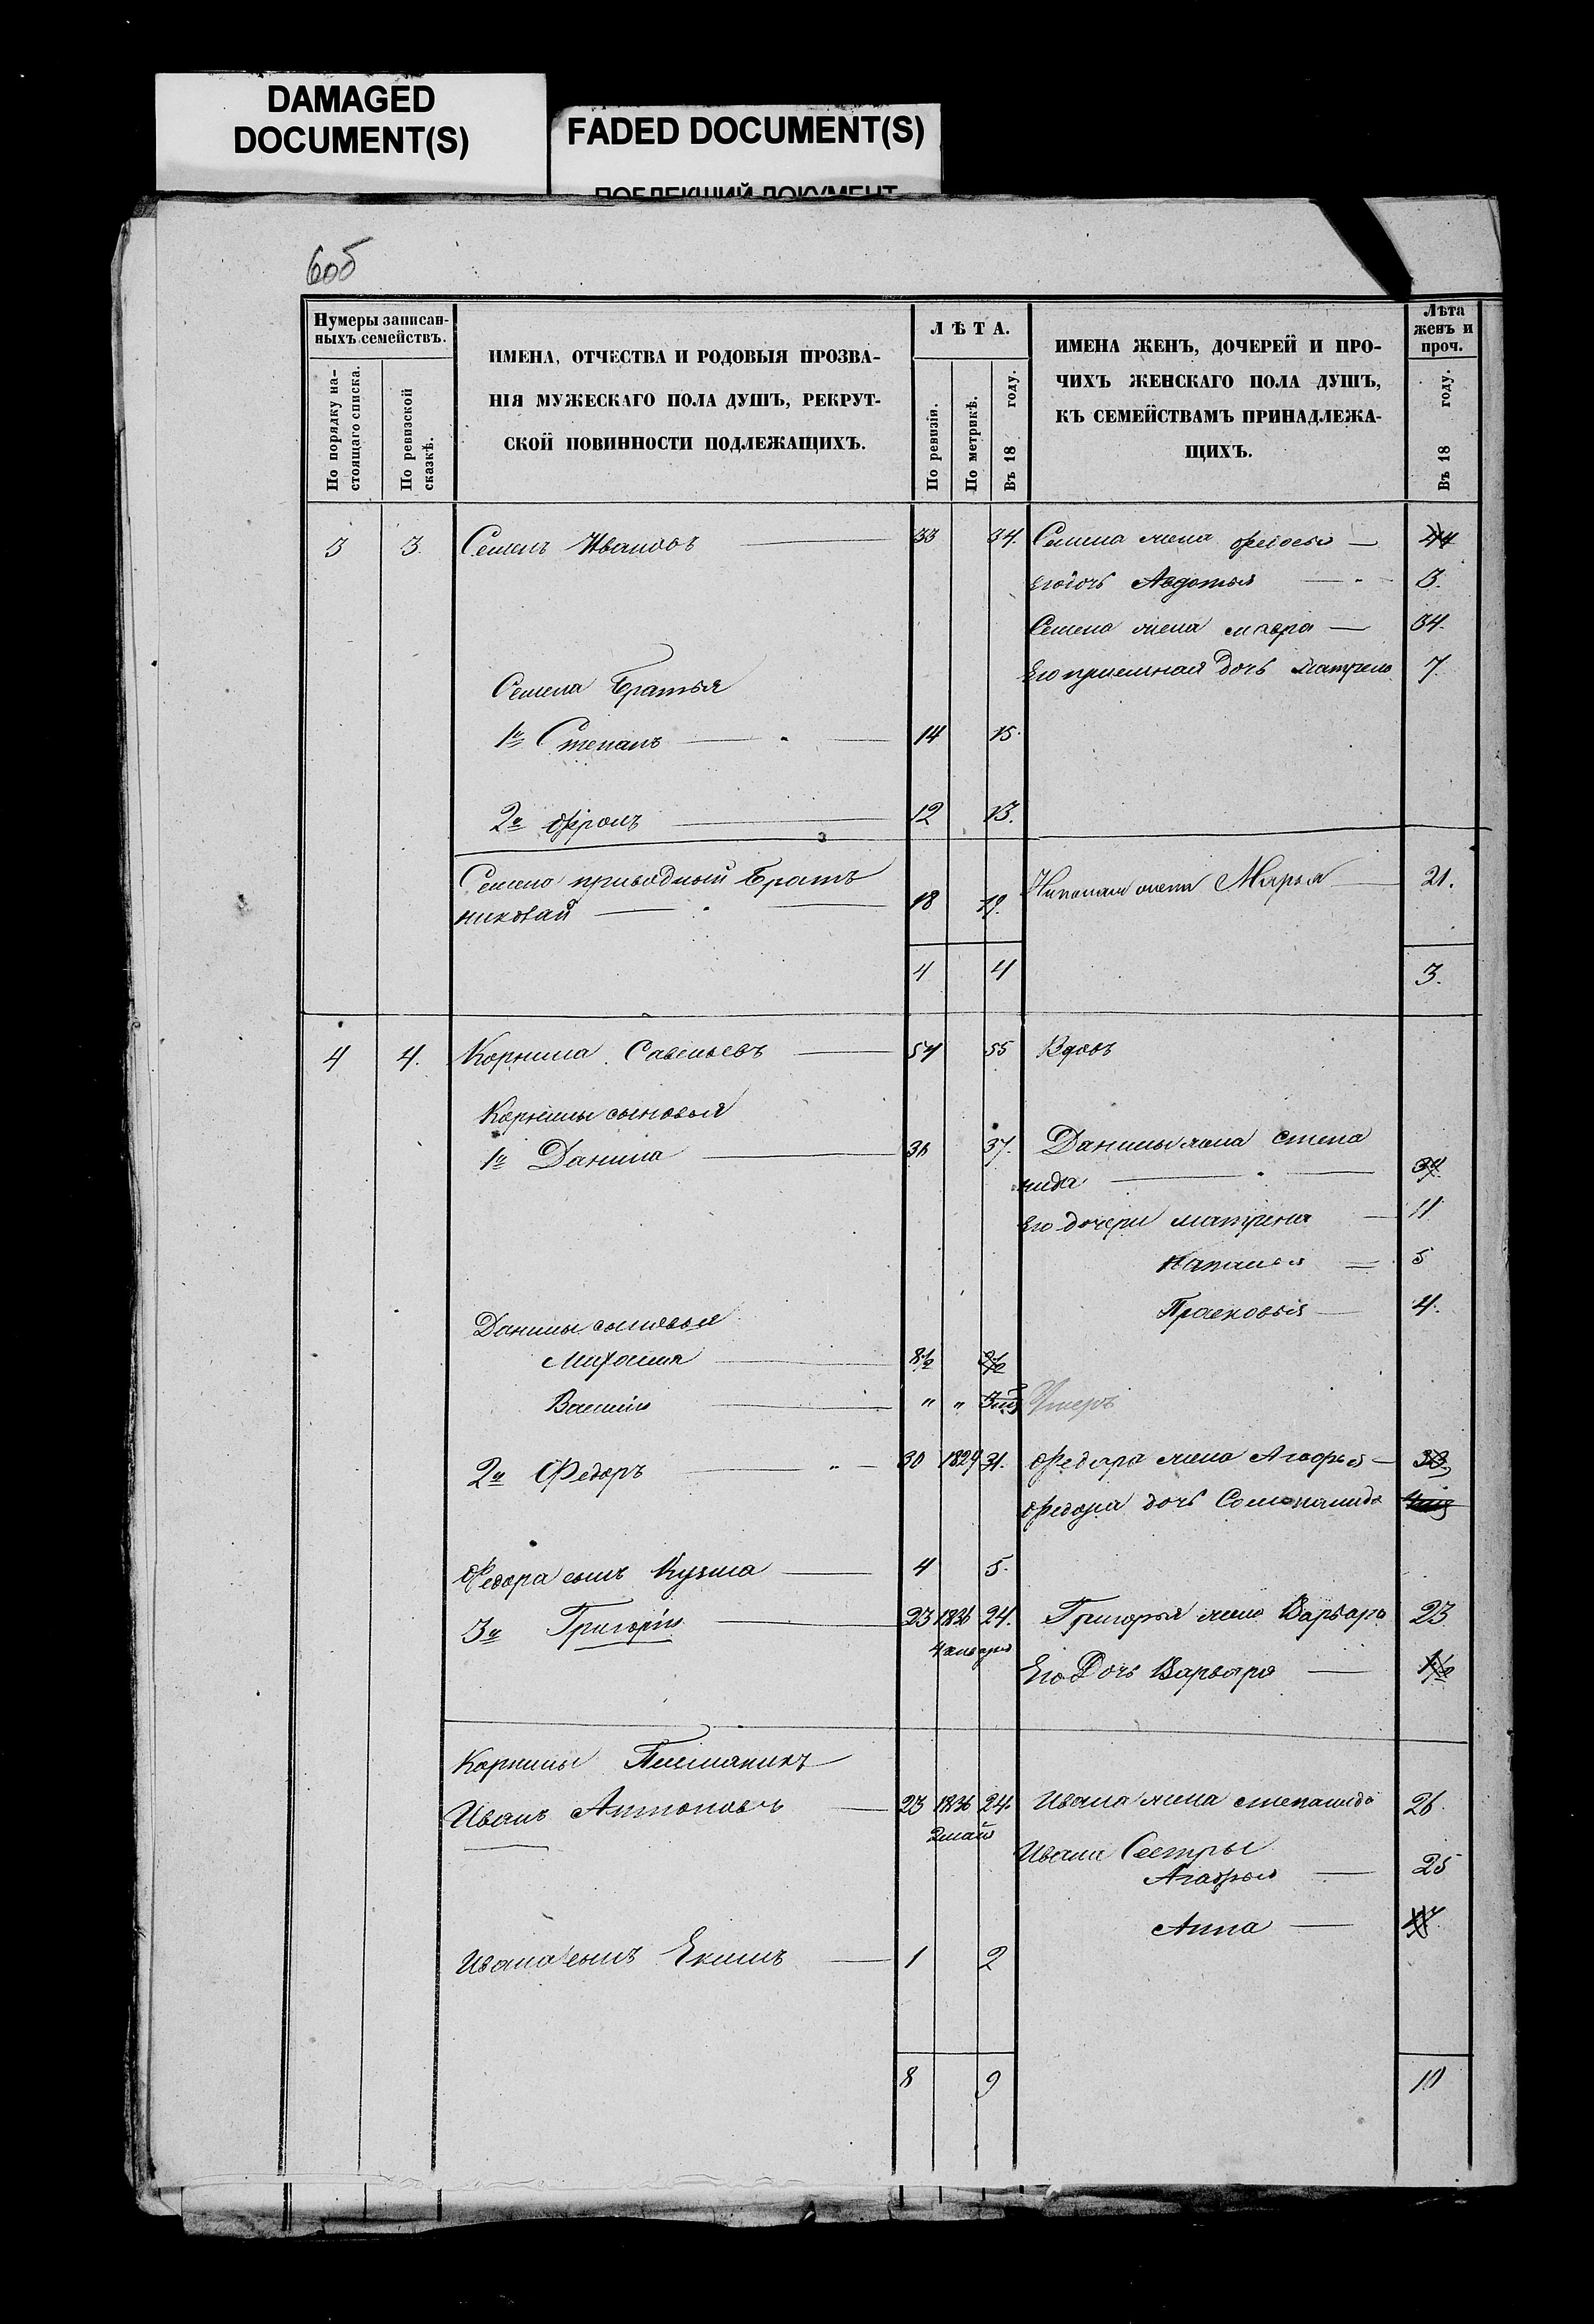 DAMAGED
DOCUMENT(S)
FADED DOCUMENT(S)
ПОБЛЕКШИЙ ДОКУМЕНТ
6об
Нумеры записан-
ныхъ семействъ.
По порядку на-
стоящаго списка.
По ревизской
сказкѣ.
ИМЕНА, ОТЧЕСТВА И РОДОВЫЯ ПРОЗВА-
НІЯ МУЖЕСКАГО ПОЛА ДУШЪ, РЕКРУТ-
СКОЙ ПОВИННОСТИ ПОДЛЕЖАЩИХЪ.
ЛѢТА.
По ревизіи.
По метрикѣ.
Въ 18 году.
ИМЕНА ЖЕНЪ, ДОЧЕРЕЙ И ПРО-
ЧИХЪ ЖЕНСКАГО ПОЛА ДУШЪ,
КЪ СЕМЕЙСТВАМЪ ПРИНАДЛЕЖА-
ЩИХЪ.
Лѣта
женъ и
проч.
Въ 18 году.
3 3. Семенъ Ивановъ 33 34. Семена жена
Его дочь Авдотья 3.
Семена жена мавра 34.
Его приемная дочь матрена 7.
Семена Братья
1й Степанъ 14 15.
2й Фролъ 12 13.
Семена приводный Братъ
николай 18 19. Николая жена Марья 21.
4 4 3.
4 4. Корнила Савельевъ 54 55 Вдовъ
Корнилы сыновья
1й Данила 36 37. Данилы жена степа
нида
Его дочери матрена 11
5
Прасковья 4.
Данилы сыновья
8½
Василий " " Умеръ
2й Федоръ 30 1829 31. Федора жена Агафья
Федора дочь
Федора сынъ Кузма 4 5.
3й Григорій 23 1836 24. Григорья жена Варвара 23
Его Дочь Варвара
Корнилы Племяникъ
Иванъ Антоновъ 23 1836 24. Ивана жена степанида 26.
2 мая
Ивана Сестры
Агафья 25
Анна
Ивана сынъ Екимъ 1 2
8 9 10